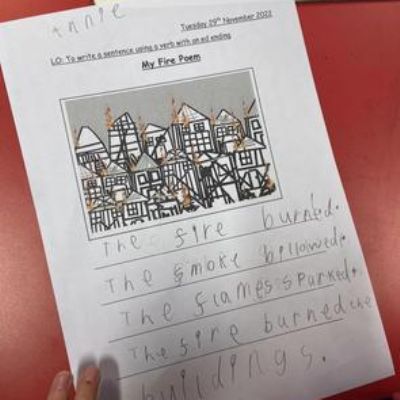 Annie
Tuesday 29th November 2022
LO: To write a sentence using a verb with an ed ending
My Fire Poem
The fire burned.
The smoke billowed.
The flames sparked.
The fire burned the
buildings.